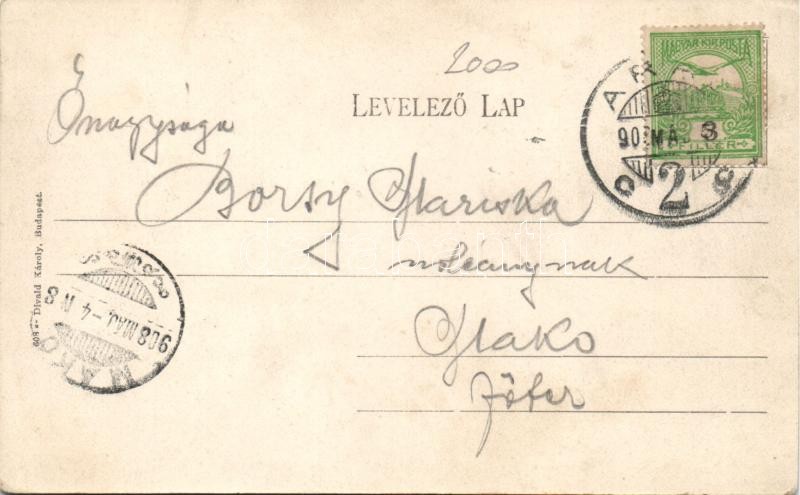 2000
LEVELEZŐ LAP
MAGYAR KIR. POSTA
FILLÉR
ARAD
908 MÁ 3
2
Őnagysága
Borsy Mariska
urleánynak
Makó
Főtér
608 Divald Károly, Budapest.
908 MÁJ.-4 N 8
MAKÓ